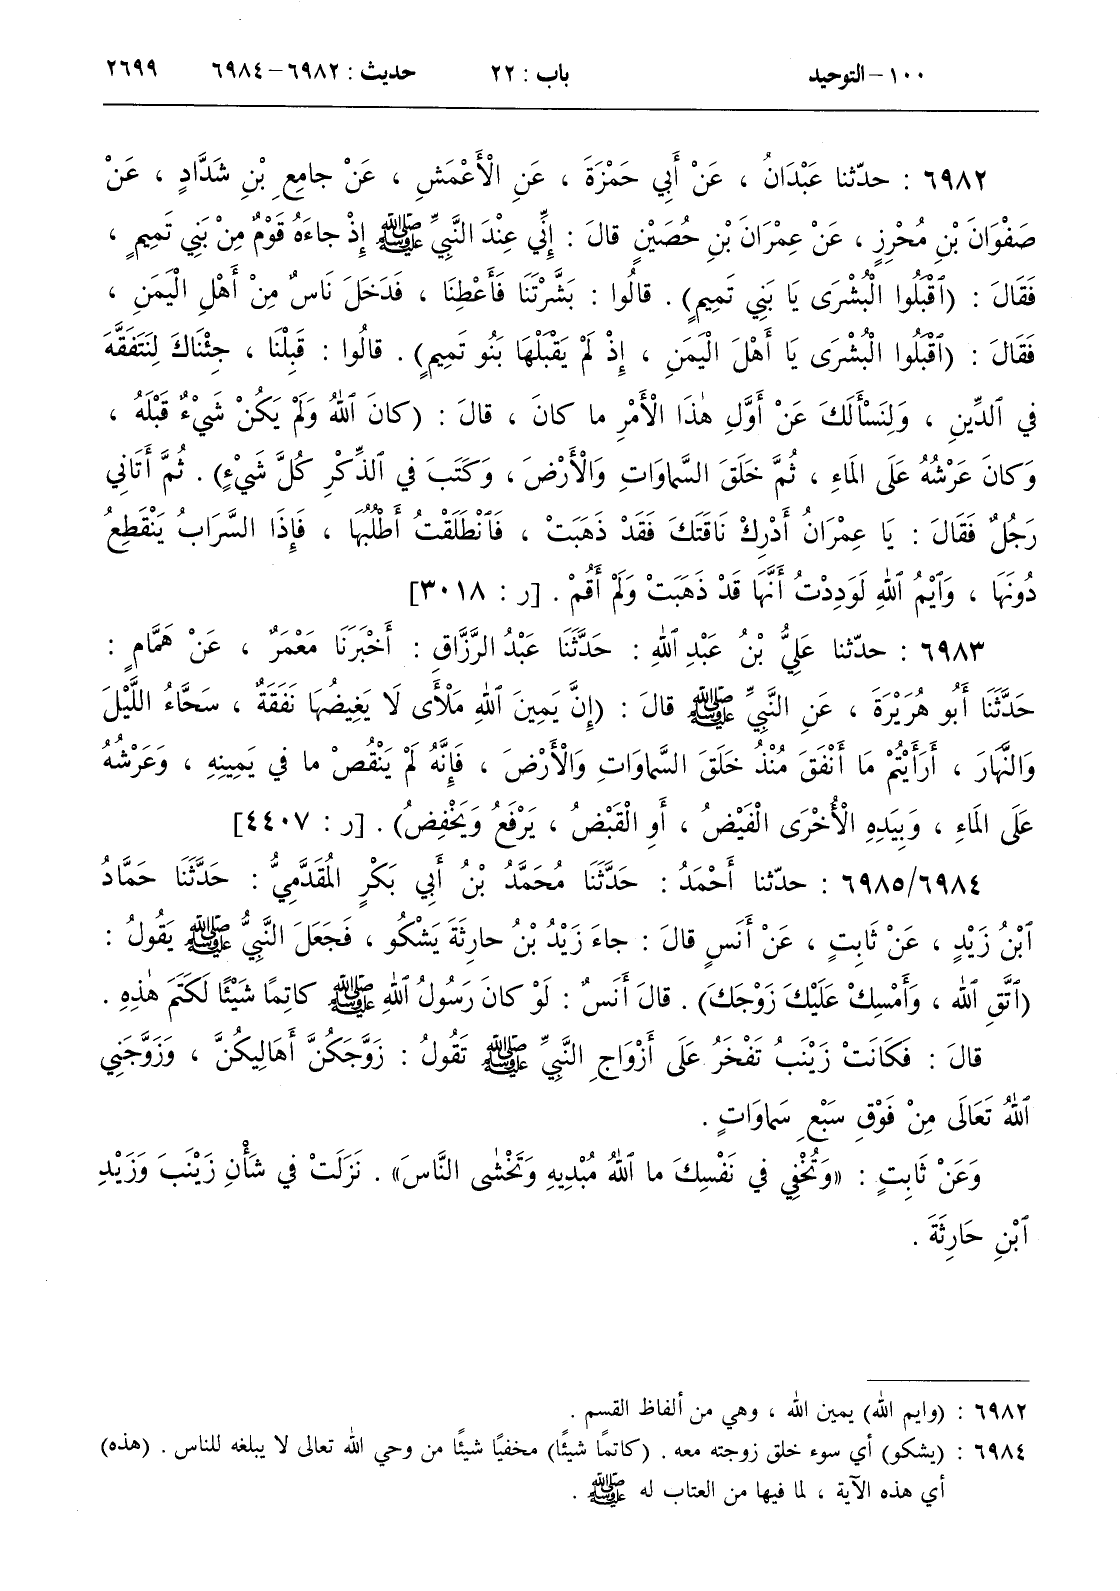 ١٠٠ - التوحيد باب : ٢٢ حديث : ٦٩٨٢ - ٦٩٨٤ ٢٦٩٩
٦٩٨٢ : حدّثنا عَبْدَانُ ، عَنْ أَبِي حَمْزَةَ ، عَنِ الْأَعْمَشِ ، عَنْ جامِعِ بْنِ شَدَّادٍ ، عَنْ
صَفْوَانَ بْنِ مُحْرِزٍ ، عَنْ عِمْرَانَ بْنِ حُصَيْنٍ قالَ : إِنِّي عِنْدَ النَّبِيِّ ﷺ إِذْ جاءَهُ قَوْمٌ مِنْ بَنِي تَمِيمٍ ،
فَقَالَ : (ٱقْبَلُوا الْبُشْرَى يَا بَنِي تَمِيمٍ) . قالُوا : بَشَّرْتَنَا فَأَعْطِنَا ، فَدَخَلَ نَاسٌ مِنْ أَهْلِ الْيَمَنِ ،
فَقَالَ : (ٱقْبَلُوا الْبُشْرَى يَا أَهْلَ الْيَمَنِ ، إِذْ لَمْ يَقْبَلْهَا بَنُو تَمِيمٍ) . قالُوا : قَبِلْنَا ، جِئْنَاكَ لِنَتَفَقَّهَ
في ٱلدِّينِ ، وَلِنَسْأَلَكَ عَنْ أَوَّلِ هٰذَا الْأَمْرِ ما كانَ ، قالَ : (كانَ ٱللهُ وَلَمْ يَكُنْ شَيْءٌ قَبْلَهُ ،
وَكانَ عَرْشُهُ عَلَى المَاءِ ، ثُمَّ خَلَقَ السَّماوَاتِ وَالْأَرْضَ ، وَكَتَبَ في ٱلذِّكْرِ كُلَّ شَيْءٍ) . ثُمَّ أَتَانِي
رَجُلٌ فَقَالَ : يَا عِمْرَانُ أَدْرِكْ نَاقَتَكَ فَقَدْ ذَهَبَتْ ، فَٱنْطَلَقْتُ أَطْلُبُهَا ، فَإِذَا السَّرَابُ يَنْقَطِعُ
دُونَهَا ، وَٱيْمُ ٱللهِ لَوَدِدْتُ أَنَّهَا قَدْ ذَهَبَتْ وَلَمْ أَقُمْ . [ر : ٣٠١٨]
٦٩٨٣ : حدّثنا عَلِيُّ بْنُ عَبْدِ ٱللهِ : حَدَّثَنَا عَبْدُ الرَّزَّاقِ : أَخْبَرَنَا مَعْمَرٌ ، عَنْ هَمَّامٍ :
حَدَّثَنَا أَبُو هُرَيْرَةَ ، عَنِ النَّبِيِّ ﷺ قالَ : (إِنَّ يَمِينَ ٱللهِ مَلْأَى لَا يَغِيضُهَا نَفَقَةٌ ، سَحَّاءُ اللَّيْلَ
وَالنَّهَارَ ، أَرَأَيْتُمْ مَا أَنْفَقَ مُنْذُ خَلَقَ السَّماوَاتِ وَالْأَرْضَ ، فَإِنَّهُ لَمْ يَنْقُصْ ما في يَمِينِهِ ، وَعَرْشُهُ
عَلَى المَاءِ ، وَبِيَدِهِ الْأُخْرَى الْفَيْضُ ، أَوِ الْقَبْضُ ، يَرْفَعُ وَيَخْفِضُ) . [ر : ٤٤٠٧]
٦٩٨٥/٦٩٨٤ : حدّثنا أَحْمَدُ : حَدَّثَنَا مُحَمَّدُ بْنُ أَبِي بَكْرٍ المُقَدَّمِيُّ : حَدَّثَنَا حَمَّادُ
ٱبْنُ زَيْدٍ ، عَنْ ثَابِتٍ ، عَنْ أَنَسٍ قالَ : جاءَ زَيْدُ بْنُ حارِثَةَ يَشْكُو ، فَجَعَلَ النَّبِيُّ ﷺ يَقُولُ :
(ٱتَّقِ ٱلله ، وَأَمْسِكْ عَلَيْكَ زَوْجَكَ) . قالَ أَنَسٌ : لَوْ كانَ رَسُولُ ٱللهِ ﷺ كاتِمًا شَيْئًا لَكَتَمَ هٰذِهِ .
قالَ : فَكَانَتْ زَيْنَبُ تَفْخَرُ عَلَى أَزْوَاجِ النَّبِيِّ ﷺ تَقُولُ : زَوَّجَكُنَّ أَهَالِيكُنَّ ، وَزَوَّجَنِي
ٱللهُ تَعَالَى مِنْ فَوْقِ سَبْعِ سَماوَاتٍ .
وَعَنْ ثَابِتٍ : «وَتُخْفِي في نَفْسِكَ ما ٱللهُ مُبْدِيهِ وَتَخْشَى النَّاسَ» . نَزَلَتْ في شَأْنِ زَيْنَبَ وَزَيْدِ
ٱبْنِ حَارِثَةَ .
٦٩٨٢ : (وايم الله) يمين الله ، وهي من ألفاظ القسم .
٦٩٨٤ : (يشكو) أي سوء خلق زوجته معه . (كاتمًا شيئًا) مخفيًا شيئًا من وحي الله تعالى لا يبلغه للناس . (هذه)
أي هذه الآية ، لما فيها من العتاب له ﷺ .